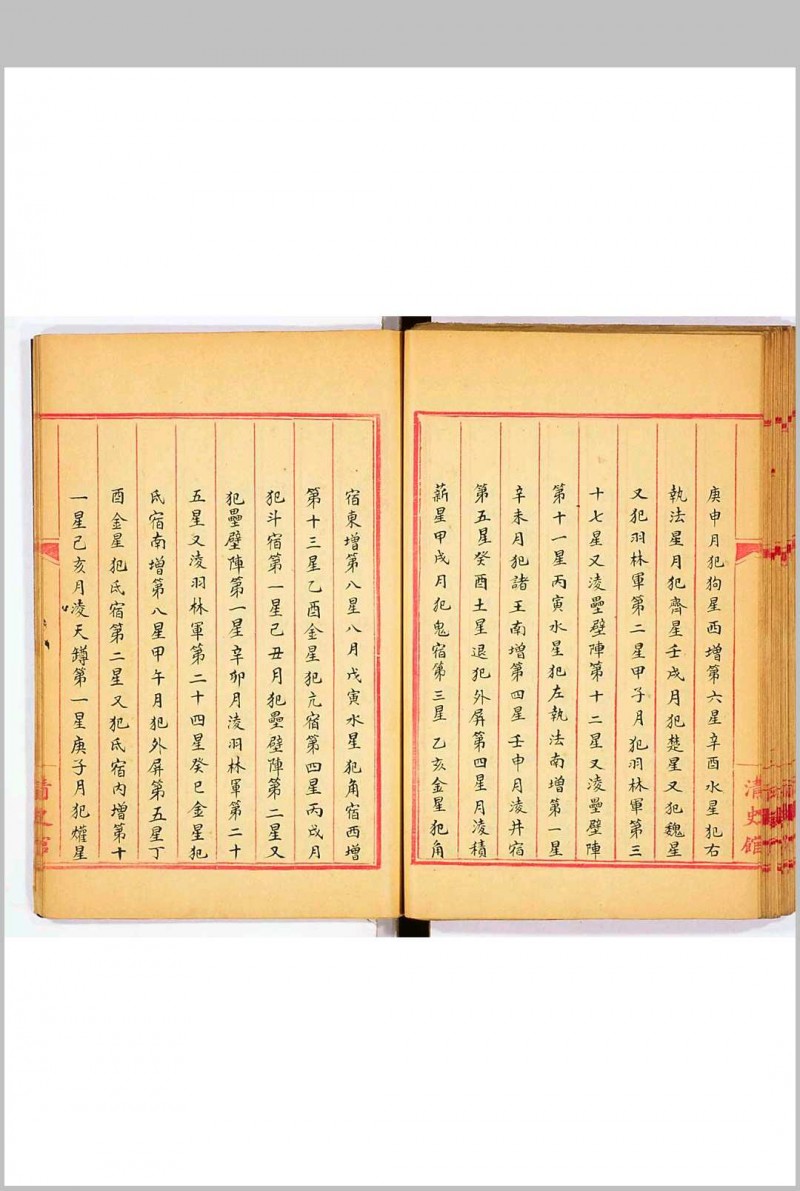 庚申月犯狗星西增第六星辛酉水星犯右
執法星月犯齊星壬戌月犯楚星又犯魏星
又犯羽林軍第二星甲子月犯羽林軍第三
十七星又淩壘壁陣第十二星又淩壘壁陣
第十一星丙寅水星犯左執法南增第一星
辛未月犯諸王南增第四星壬申月淩井宿
第五星癸酉土星退犯外屏第四星月淩積
薪星甲戌月犯鬼宿第三星乙亥金星犯角
清史館
宿東增第八星八月戊寅水星犯角宿西增
第十三星乙酉金星犯亢宿第四星丙戌月
犯斗宿第一星己丑月犯壘壁陣第二星又
犯壘壁陣第一星辛卯月淩羽林軍第二十
五星又淩羽林軍第二十四星癸巳金星犯
氐宿南增第八星甲午月犯外屏第五星丁
酉金星犯氐宿第二星又犯氐宿內增第十
一星己亥月淩天鐏第一星庚子月犯爟星
清史館